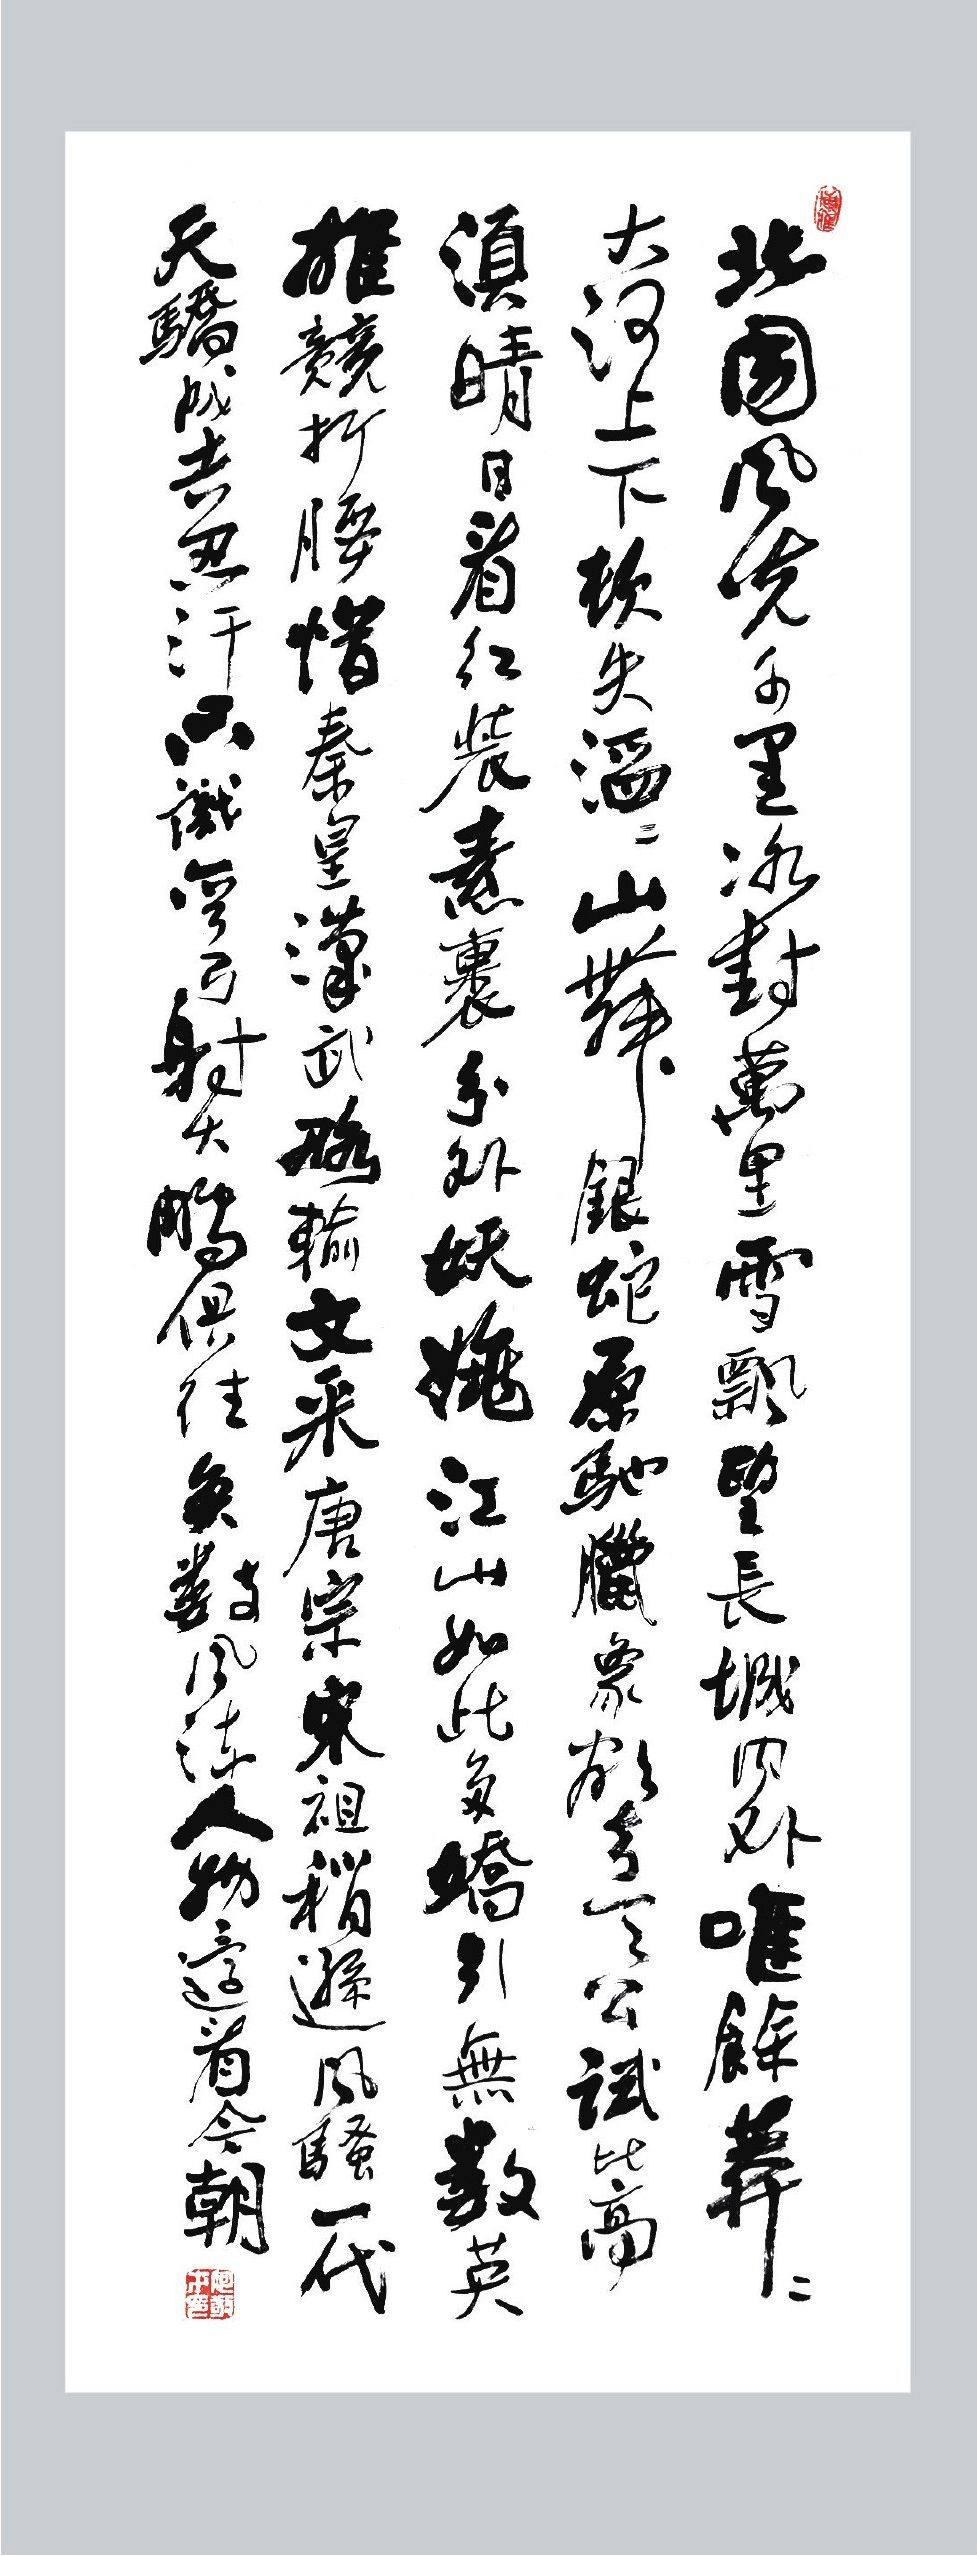 北國風光千里冰封萬里雪飄望長城內外唯餘莽〻
大河上下頓失滔〻山舞銀蛇原馳臘象欲與天公試比高
湏晴日看紅裝素裹分外妖嬈江山如此多嬌引無數英
雄競折腰惜秦皇漢武略輸文采唐宗宋祖稍遜風騷一代
天驕成吉思汗只識彎弓射大鵰俱往矣數風流人物還看今朝